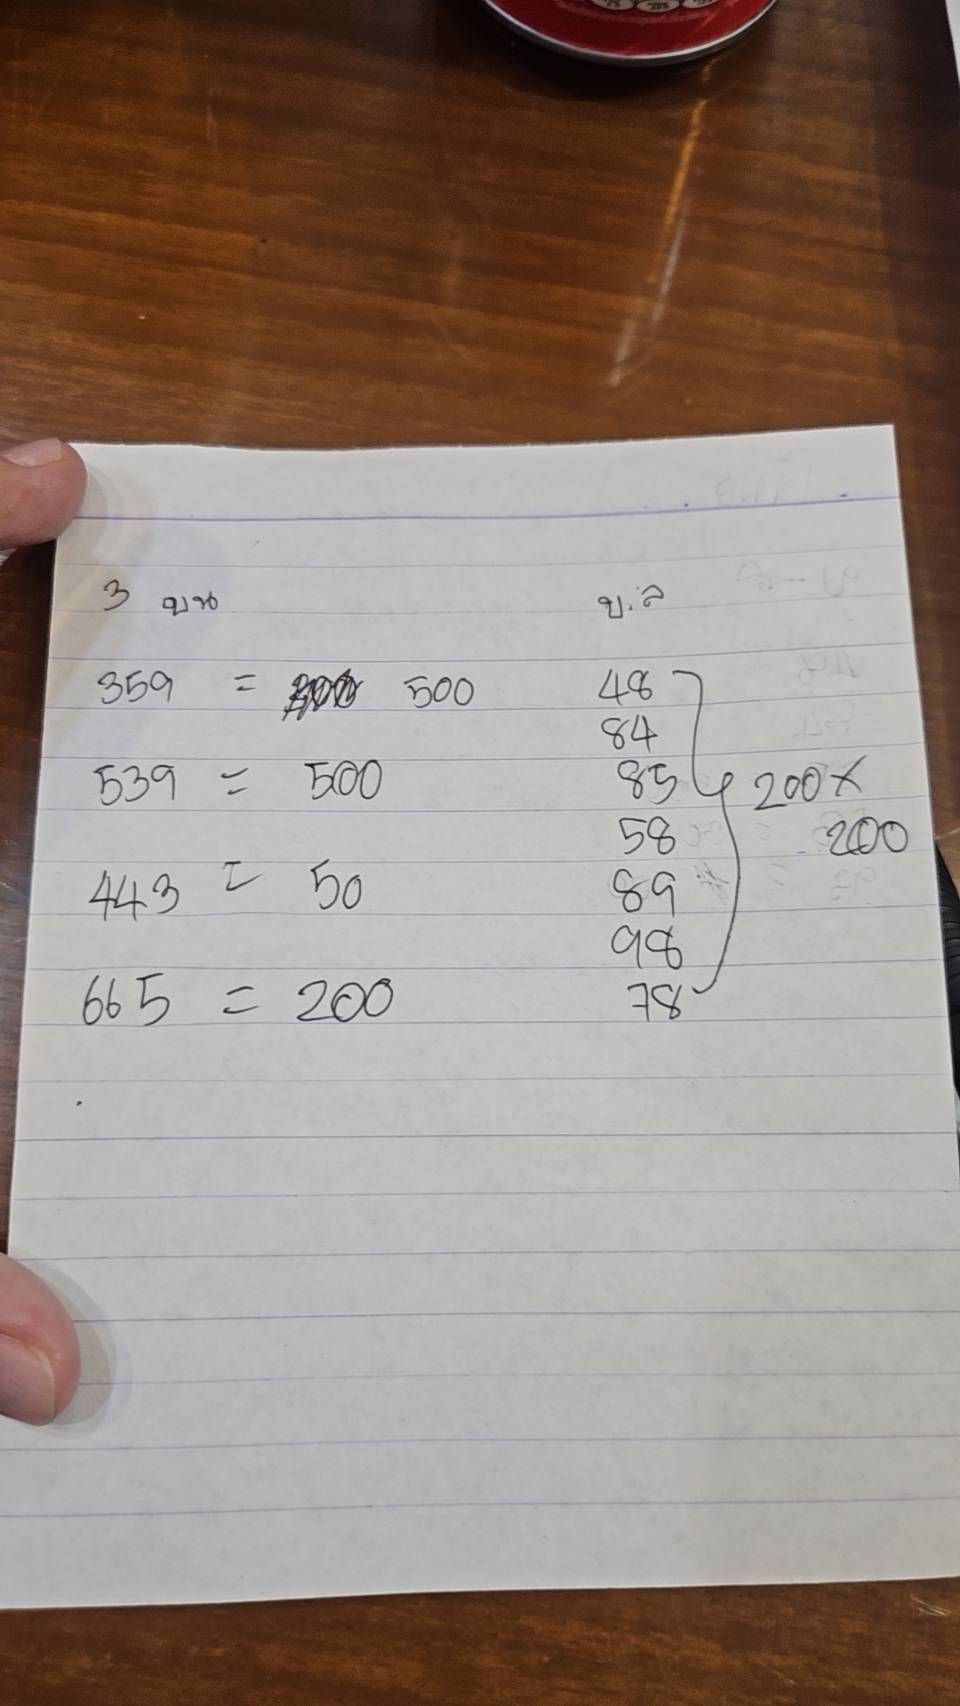 3 บน
359 = 500
539 = 500
443 = 50
665 = 200
บ.ล
48
84
85
58
89
98
78
200×
200